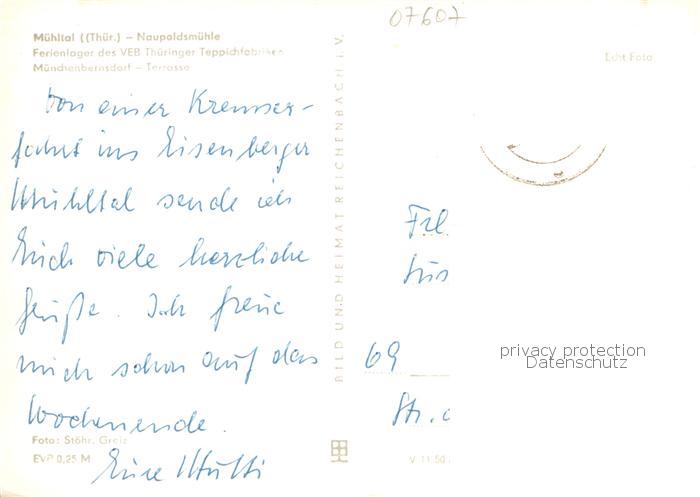 07607
Mühltal ((Thür.) – Naupoldsmühle
Ferienlager des VEB Thüringer Teppichfabriken
Münchenbernsdorf – Terrasse
Echt Foto
Von einer Kremser-
fahrt ins Eisenberger
Mühltal sende ich
Euch viele herzliche
Grüße. Ich freue
mich schon auf das
Wochenende.
Eure Mutti
Foto: Stöhr, Greiz
EVP 0,25 M
BILD UND HEIMAT REICHENBACH i. V.
V 11 50
Frl.
69
Str.
privacy protection
Datenschutz